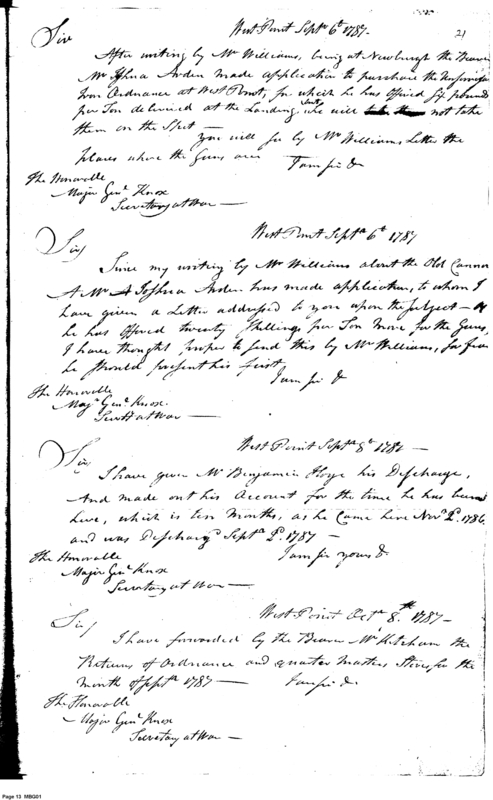 21
West Point Septr 6th 1787—
Sir
After writing by Mr Williams, being at Newburgh the Bearer
Mr Joshua Arden made application to purchase the
Iron Ordnance at West Point, for which he has offered six pounds
per Ton delivered at the Landing, but he will not take
them on the Spot—
you will see by Mr Williams Letter the
places where the Guns are I am sir &
The Honorable
Major Genl Knox
Secretary at War —
West Point Septr 6th 1787
Sir,
Since my writing by Mr Williams about the Old Cannon
A Mr Joshua Arden has made application, to whom I
have given a Letter addressed to you upon the subject — as
he has offered twenty Shillings per Ton more for the Guns,
I have thought proper to send this by Mr Williams, for fear
he should present his first
I am sir &
The Honorable
Majr Genl Knox
Secrety at War —
West Point Septr 8th 1787—
Sir,
I have given Mr Benjamin his Discharge,
And made out his Account for the time he has been
here, which is ten Months, as he Came here Novr 2d 1786,
and was Dischargd Septr 2d 1787 —
The Honorable I am sir yours &
Major Genl Knox
Secretary at War —
West Point Octr 8th 1787—
Sir,
I have forwarded by the Bearer Mr Ketcham the
Returns of Ordnance and quarter Masters Stores, for the
Month of Septr 1787 — I am sir &
The Honorable
Major Genl Knox
Secretary at War —
Page 13 MBG01